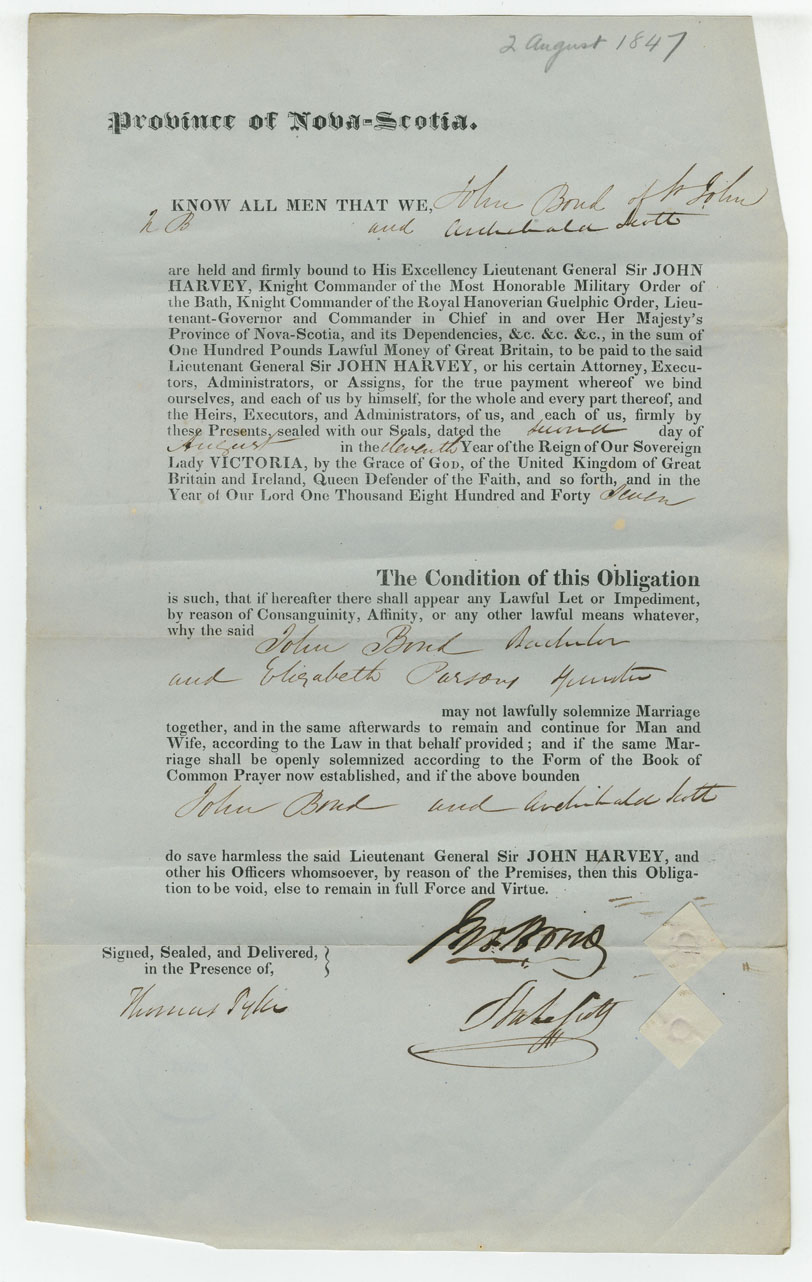 2 August 1847
Province of Nova-Scotia.
KNOW ALL MEN THAT WE, John Bond of St John
N B and Archibald Scott
are held and firmly bound to His Excellency Lieutenant General Sir JOHN
HARVEY, Knight Commander of the Most Honorable Military Order of
the Bath, Knight Commander of the Royal Hanoverian Guelphic Order, Lieu-
tenant-Governor and Commander in Chief in and over Her Majesty's
Province of Nova-Scotia, and its Dependencies, &c. &c. &c., in the sum of
One Hundred Pounds Lawful Money of Great Britain, to be paid to the said
Lieutenant General Sir JOHN HARVEY, or his certain Attorney, Execu-
tors, Administrators, or Assigns, for the true payment whereof we bind
ourselves, and each of us by himself, for the whole and every part thereof, and
the Heirs, Executors, and Administrators, of us, and each of us, firmly by
these Presents, sealed with our Seals, dated the second day of
August in the eleventh Year of the Reign of Our Sovereign
Lady VICTORIA, by the Grace of GOD, of the United Kingdom of Great
Britain and Ireland, Queen Defender of the Faith, and so forth, and in the
Year of Our Lord One Thousand Eight Hundred and Forty Seven
The Condition of this Obligation
is such, that if hereafter there shall appear any Lawful Let or Impediment,
by reason of Consanguinity, Affinity, or any other lawful means whatever,
why the said John Bond Bachelor
and Elizabeth Parsons Spinster
may not lawfully solemnize Marriage
together, and in the same afterwards to remain and continue for Man and
Wife, according to the Law in that behalf provided; and if the same Mar-
riage shall be openly solemnized according to the Form of the Book of
Common Prayer now established, and if the above bounden
John Bond and Archibald Scott
do save harmless the said Lieutenant General Sir JOHN HARVEY, and
other his Officers whomsoever, by reason of the Premises, then this Obliga-
tion to be void, else to remain in full Force and Virtue.
Jno. Bond
Signed, Sealed, and Delivered,
in the Presence of,
Thomas
Scott